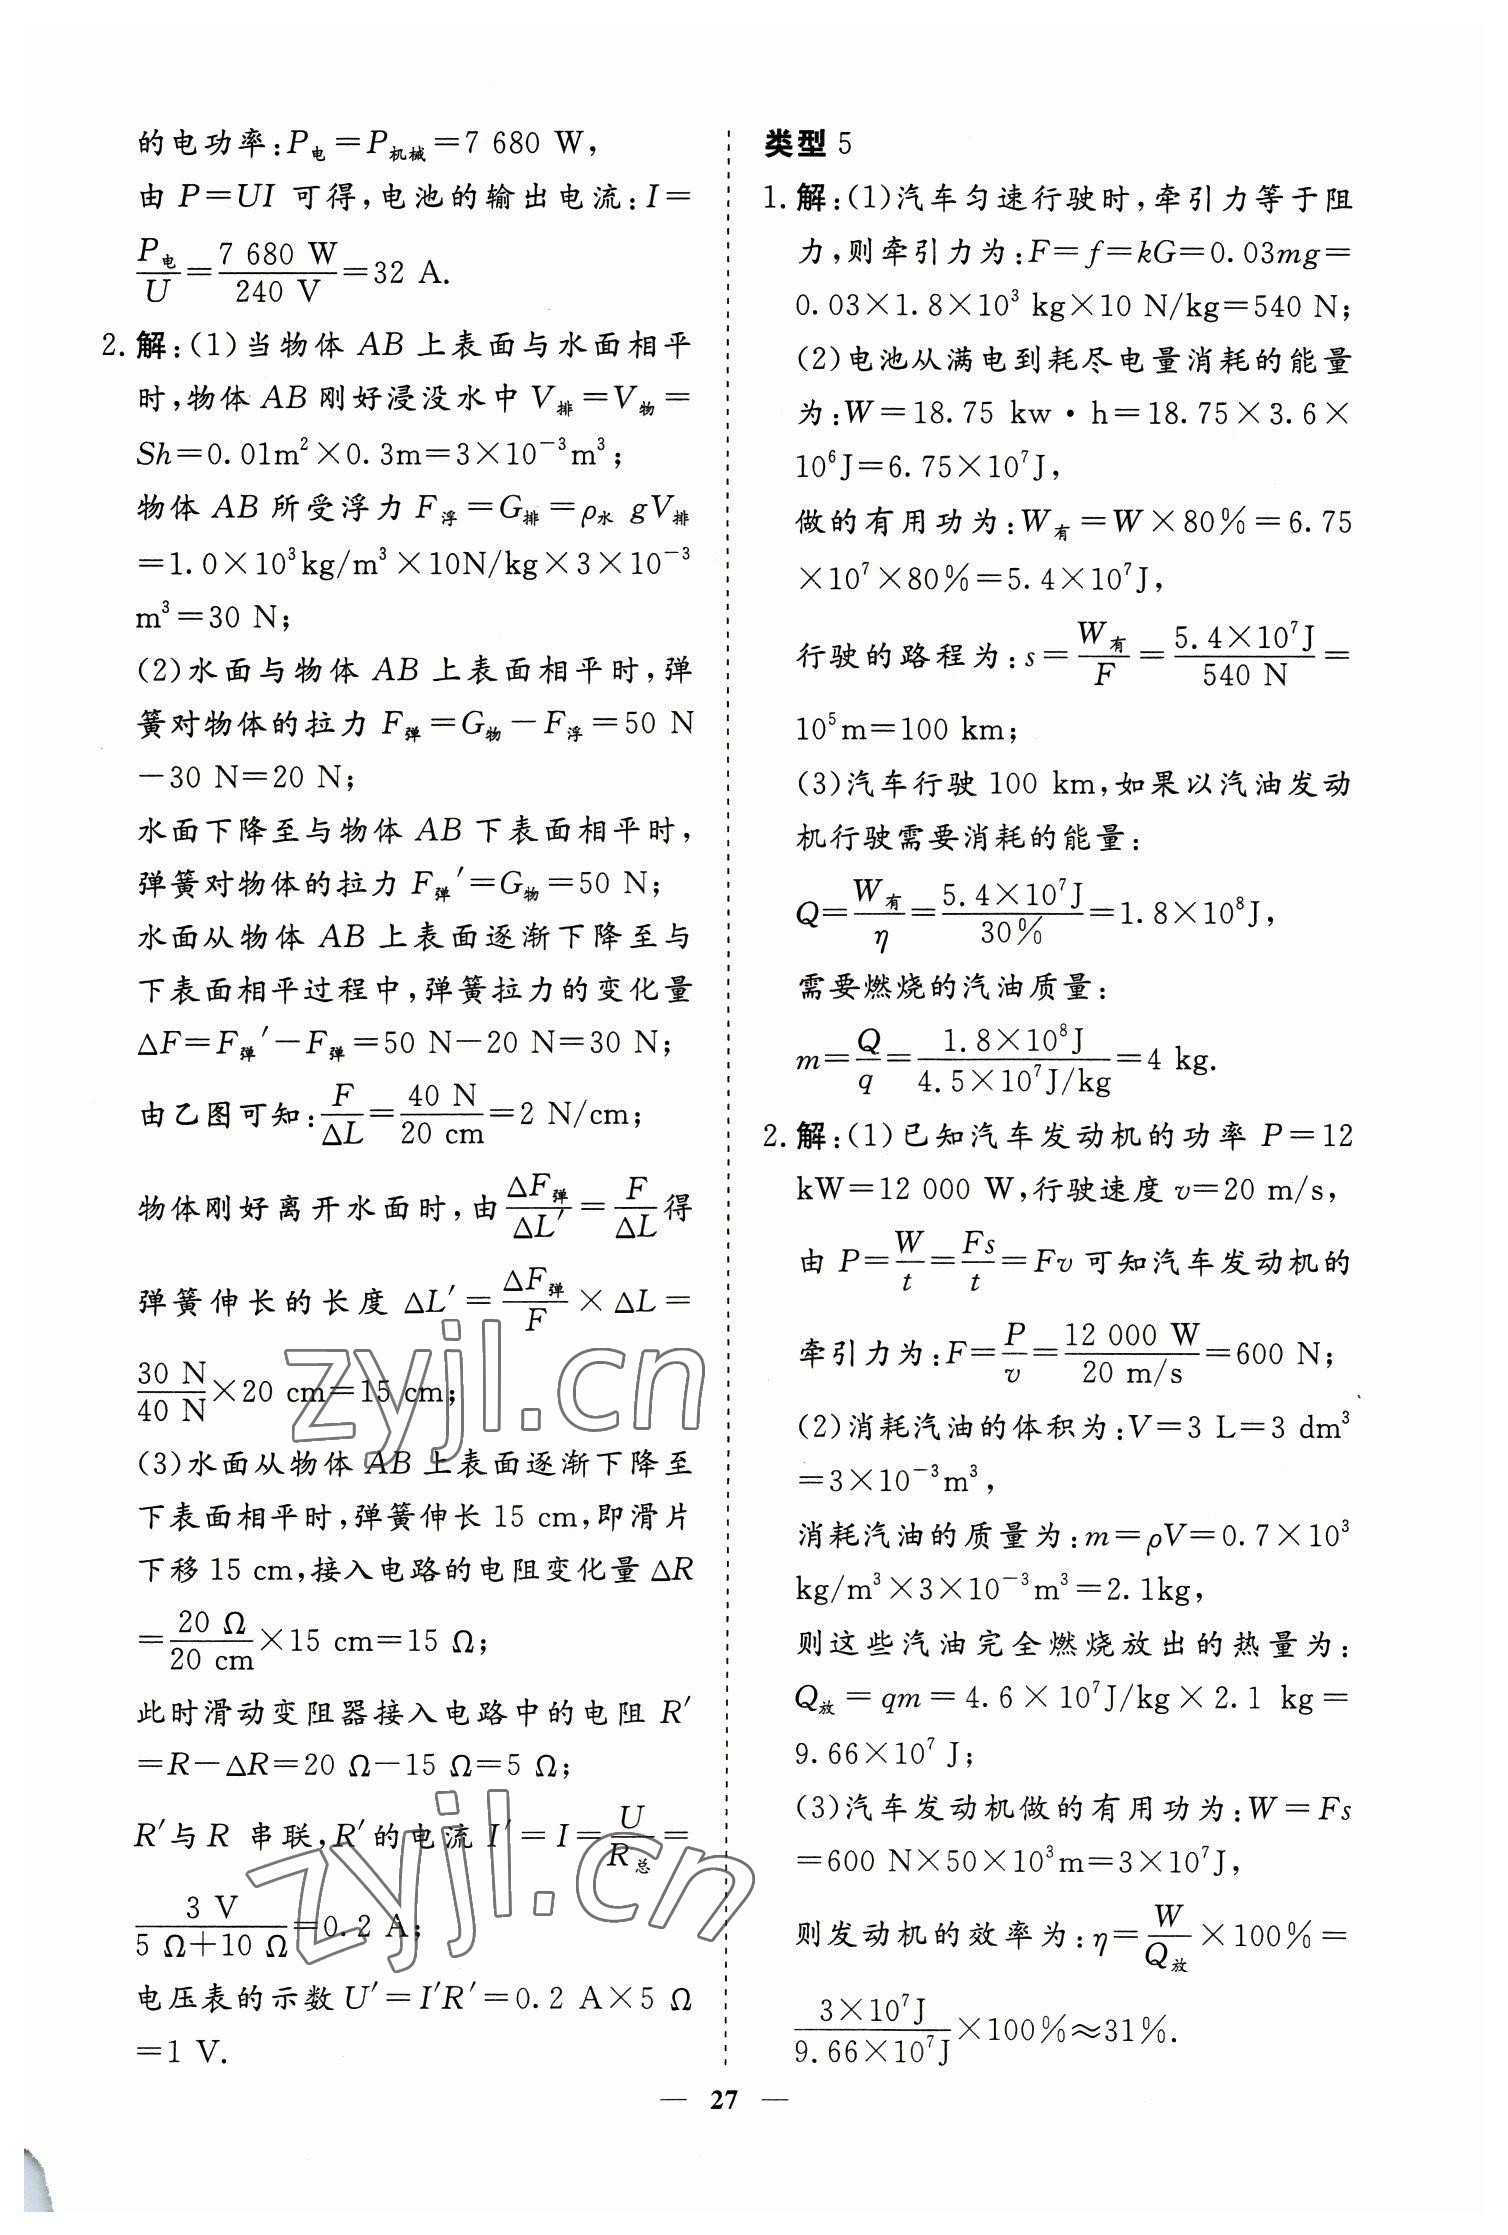 的电功率:P电=P机械=7 680 W,
由 P=UI 可得,电池的输出电流:I=
P电/U=7 680 W/240 V=32 A.
2. 解:(1)当物体 AB 上表面与水面相平
时,物体 AB 刚好浸没水中 V排=V物=
Sh=0.01m²×0.3m=3×10⁻³m³;
物体 AB 所受浮力 F浮=G排=ρ水 gV排
=1.0×10³kg/m³×10N/kg×3×10⁻³
m³=30 N;
(2)水面与物体 AB 上表面相平时,弹
簧对物体的拉力 F弹=G物-F浮=50 N
-30 N=20 N;
水面下降至与物体 AB 下表面相平时,
弹簧对物体的拉力 F弹′=G物=50 N;
水面从物体 AB 上表面逐渐下降至与
下表面相平过程中,弹簧拉力的变化量
△F=F弹′-F弹=50 N-20 N=30 N;
由乙图可知:F/△L=40 N/20 cm=2 N/cm;
物体刚好离开水面时,由△F弹/△L′=F/△L得
弹簧伸长的长度 △L′=△F弹/F×△L=
30 N/40 N×20 cm=15 cm;
(3)水面从物体 AB 上表面逐渐下降至
下表面相平时,弹簧伸长 15 cm,即滑片
下移 15 cm,接入电路的电阻变化量 △R
=20 Ω/20 cm×15 cm=15 Ω;
此时滑动变阻器接入电路中的电阻 R′
=R-△R=20 Ω-15 Ω=5 Ω;
R′与 R 串联,R′的电流 I′=I=U/R总=
3 V/(5 Ω+10 Ω)=0.2 A;
电压表的示数 U′=I′R′=0.2 A×5 Ω
=1 V.
类型 5
1. 解:(1)汽车匀速行驶时,牵引力等于阻
力,则牵引力为:F=f=kG=0.03mg=
0.03×1.8×10³ kg×10 N/kg=540 N;
(2)电池从满电到耗尽电量消耗的能量
为:W=18.75 kw·h=18.75×3.6×
10⁶J=6.75×10⁷J,
做的有用功为:W有=W×80%=6.75
×10⁷×80%=5.4×10⁷J,
行驶的路程为:s=W有/F=5.4×10⁷J/540 N=
10⁵m=100 km;
(3)汽车行驶 100 km,如果以汽油发动
机行驶需要消耗的能量:
Q=W有/η=5.4×10⁷J/30%=1.8×10⁸J,
需要燃烧的汽油质量:
m=Q/q=1.8×10⁸J/4.5×10⁷J/kg=4 kg.
2. 解:(1)已知汽车发动机的功率 P=12
kW=12 000 W,行驶速度 v=20 m/s,
由 P=W/t=Fs/t=Fv 可知汽车发动机的
牵引力为:F=P/v=12 000 W/20 m/s=600 N;
(2)消耗汽油的体积为:V=3 L=3 dm³
=3×10⁻³m³,
消耗汽油的质量为:m=ρV=0.7×10³
kg/m³×3×10⁻³m³=2.1kg,
则这些汽油完全燃烧放出的热量为:
Q放=qm=4.6×10⁷J/kg×2.1 kg=
9.66×10⁷ J;
(3)汽车发动机做的有用功为:W=Fs
=600 N×50×10³m=3×10⁷J,
则发动机的效率为:η=W/Q放×100%=
3×10⁷J/9.66×10⁷J×100%≈31%.
— 27 —
zyjl.cn
zyjl.cn